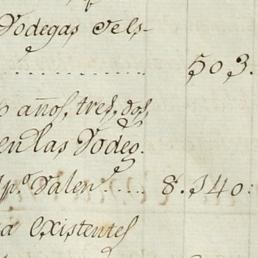 Bodegas de ls-
........... 503.
años, tres, dos,
en las Bodeg.
Valen..... 8.340:
existentes